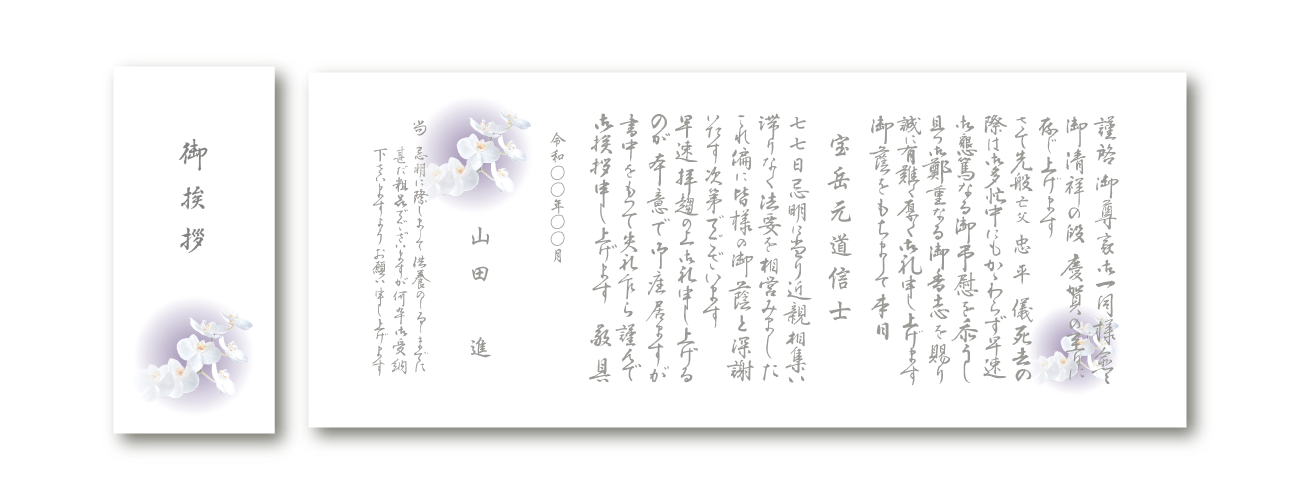 御挨拶
謹啓 御尊家御一同様愈々
御清祥の段 慶賀の至りに
存じ上げます
さて先般 亡父 忠平 儀 死去の
際は御多忙中にもかゝわらず早速
御懇篤なる御弔慰を忝うし
且つ御鄭重なる御香志を賜り
誠に有難く厚く御礼申し上げます
御蔭をもちまして本日
宝岳元道信士
七七日忌明に当り近親相集い
滞りなく法要を相営みました
これ偏に皆様の御蔭と深謝
いたす次第でございます
早速拝趨の上御礼申し上げる
のが本意で御座居ますが
書中をもって失礼乍ら謹んで
御挨拶申し上げます 敬具
令和〇〇年〇〇月
山田 進
尚 忌明に際しまして供養のしるしまでに
甚だ粗品でございますが何卒御受納
下さいますようお願い申し上げます